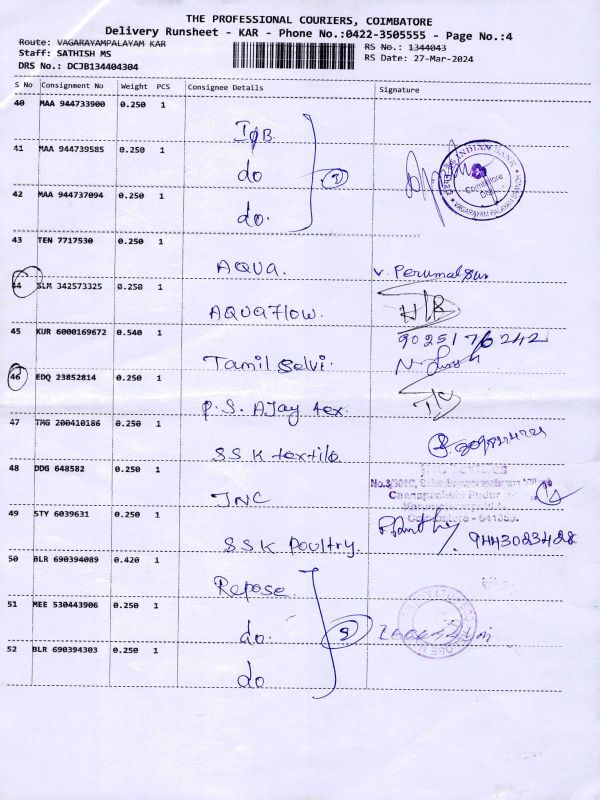 THE PROFESSIONAL COURIERS, COIMBATORE
Delivery Runsheet - KAR - Phone No.:0422-3505555 - Page No.:4
Route: VAGARAYAMPALAYAM KAR
RS No.: 1344043
Staff: SATHISH MS
RS Date: 27-Mar-2024
DRS No.: DCJB134404304
S No Consignment No Weight PCS Consignee Details Signature
40 MAA 944733900 0.250 1
IOB.
41 MAA 944739585 0.250 1
do
INDIAN BANK
Coimbatore
VAGARAYAMPALAYAM
42 MAA 944737094 0.250 1
do.
43 TEN 7717530 0.250 1
AQUA.
44 SLM 342573325 0.250 1
AQUAflow.
45 KUR 6000169672 0.540 1
9025176242
Tamil Selvi.
46 EDQ 23852814 0.250 1
P.S. AJay tex.
47 TMG 200410186 0.250 1
SSK textile
48 DDG 648582 0.250 1
JNC
Coimbatore
49 STY 6039631 0.250 1
S.S.K Poultry.
50 BLR 690394089 0.420 1
Repose.
51 MEE 530443906 0.250 1
do.
52 BLR 690394303 0.250 1
do